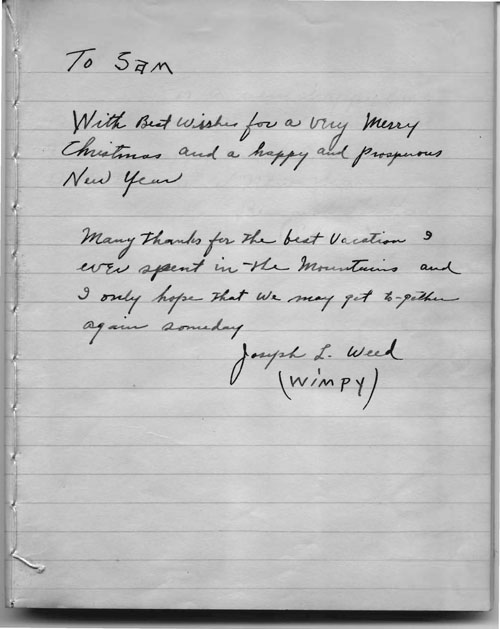 To Sam
With Best Wishes for a very Merry
Christmas and a happy and Prosperous
New Year
Many thanks for the best Vacation I
ever spent in the Mountains and
I only hope that we may get to-gether
again someday
Joseph L. Weed
(WIMPY)